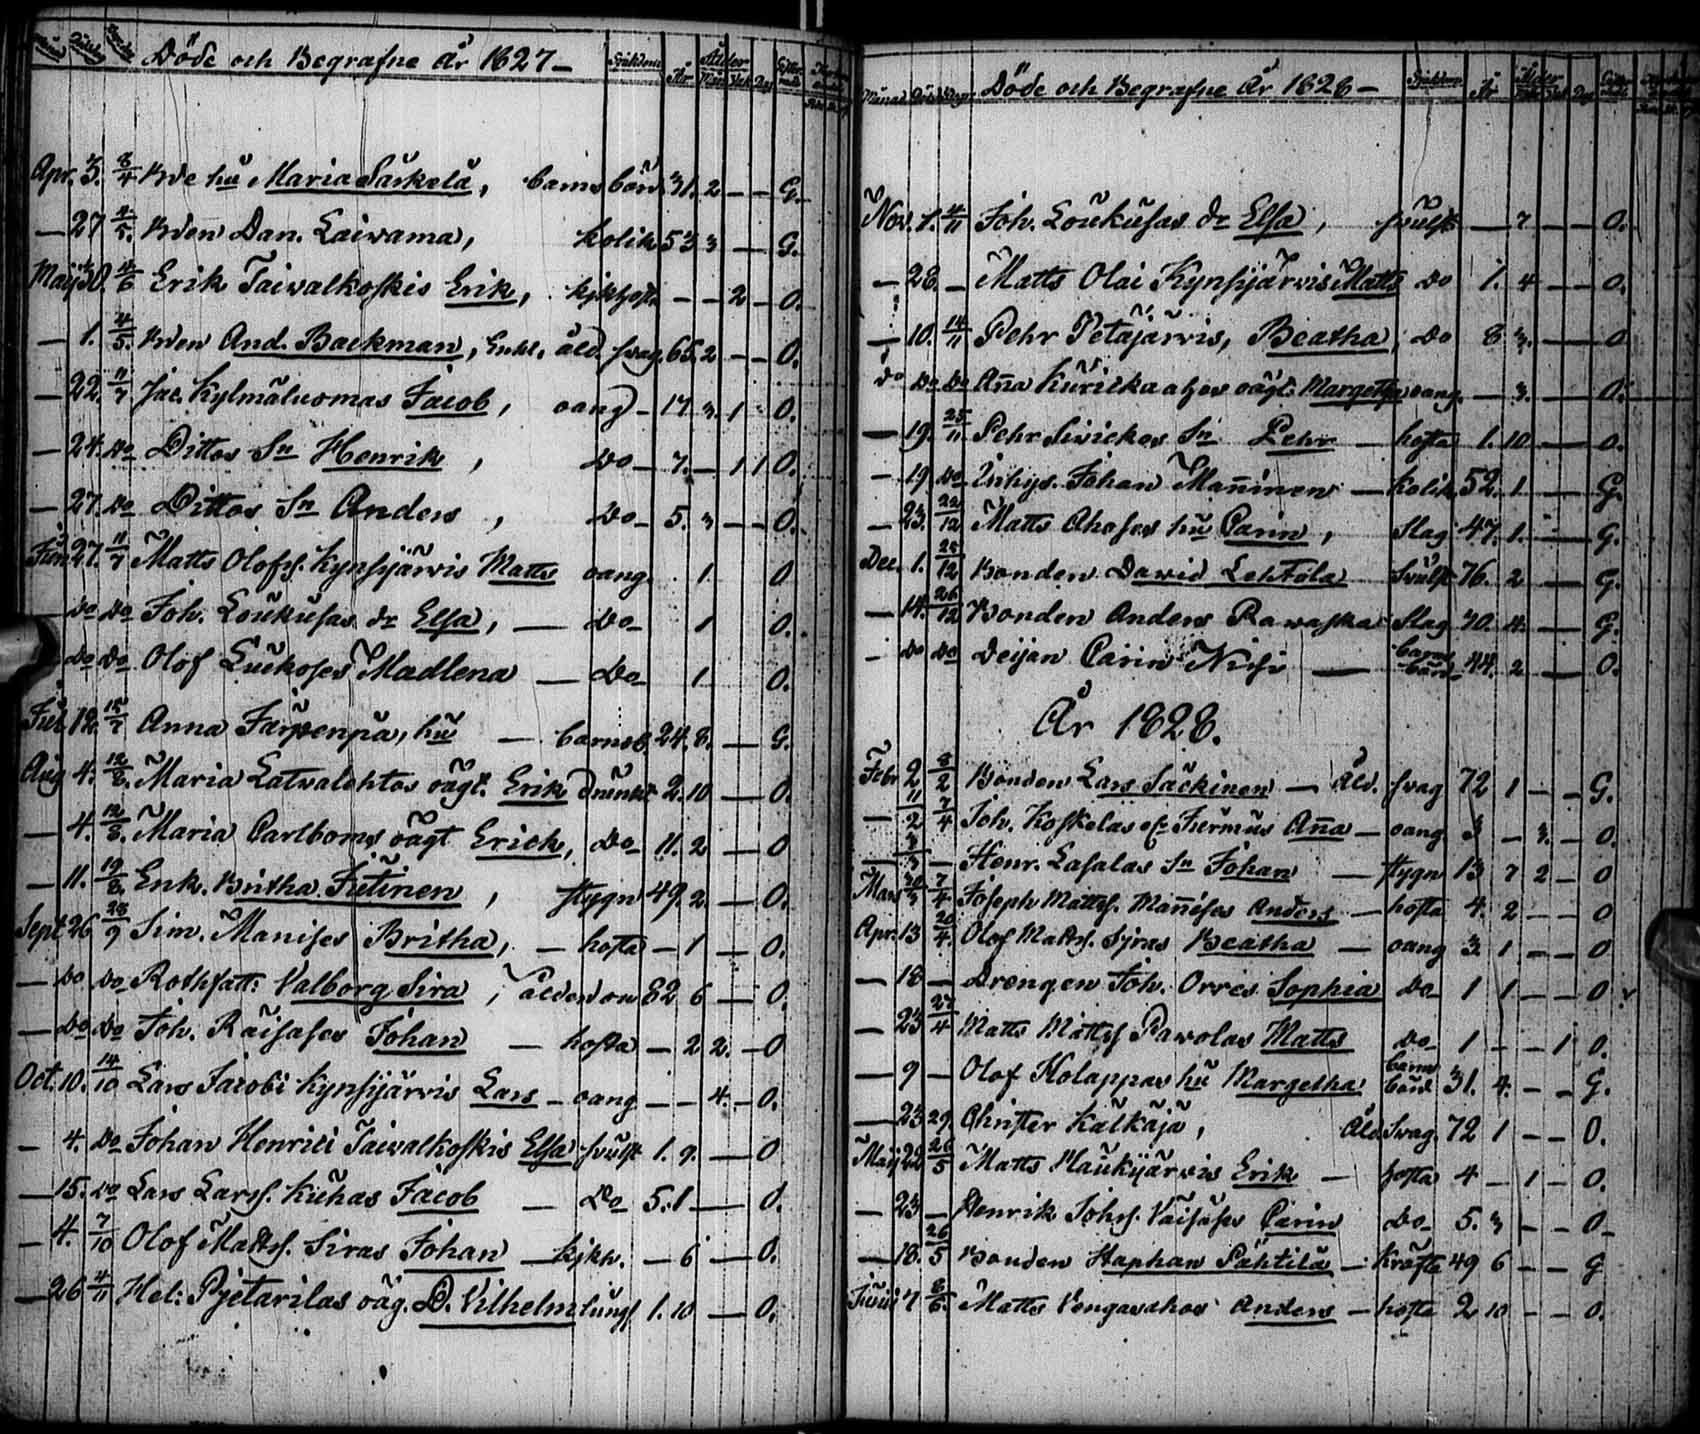 Månad Död Begr. Döde och Begrafne År 1827 Sjukdom Ålder År Mån Vek Dag
Apr. 3. 8/4 Bde hu Maria Särkelä, barnsbörd 31. 2 – – G.
– 27 4/5. Bden Dan. Laiwama, kolik 53 3 – G.
Maij 30. /6 Erik Taiwalkoskis Erik, kjkhosta – – 2 – O.
– 1. 4/5. Bden And. Backman, Enkl. åld. svag 65. 2 – – O.
– 22. 11/7 Jac. Kylmäluomas Jacob, oang) – 17. 3. 1 O.
– 24. Do Dittos Sn Henrik, Do – 7. – 1 1 O.
– 27. Do Dittos Sn Anders, Do – 5. 3 – – O.
Jun 27. 11/7 Matts Olofs. Kynsijärwis Matts oang. 1. O
– Do Do Joh. Loukusas dr Elsa, – Do – 1 O.
Do Do Olof Luckoses Madlena – Do – 1. O.
Jul. 12. 15/7 Anna Järpenpä, hu – barnsb. 24. 8. – G.
Aug 4. 12/8. Maria Latwalehtos oägt. Erik Drunkn 2. 10 – O.
– 4. 12/8. Maria Carlboms oägt Erick, Do – 11. 2 – O
– 11. 19/8. Enk. Britha Jutinen, Stygn 49. 2 – O.
Sept 26 28/9 Sim. Manises Britha, – hosta – 1 – O.
– Do Do Rothfatt: Valborg Sira, Ålderdom 82 6 – O.
– Do Do Joh. Raisases Johan – hosta – 2 2. – O
Oct. 10. 14/10 Lars Jacobi Kynsijärwis Lars – oang – – 4. – O.
– 4. Do Johan Henrici Taiwalkoskis Elsa svulst 1. 9. – O
– 15. Do Lars Larss. Kuhas Jacob – Do 5. 1 – O.
– 4. 7/10 Olof Matts. Siras Johan – kjkh. – 6 – O.
– 26 4/11 Hel: Pyetarilas oäg. D. Vilhelm lungs 1. 10 – O.
Månad Död Begr. Döde och Begrafne År 1828 – Sjukdom Ålder År
Nov. 1. 4/11 Joh. Loukusas dr Elsa, svulst – 7 – O.
– 28. – Matts Olai Kynsijärwis Matts Do 1. 4 – O.
– 10. 14/11 Pehr Petäjärwis, Beatha, Do 8 3. – O
Do Do Do Aña Kurickaahos oägt. Margetha oang. – 3. – O.
– 19. 25/11. Pehr Siwickos Sn Pehr – hosta 1. 10 – O.
– 19. Do Inhys. Johan Mañinen – Kolik 52. 1. – G.
– 23. 22/12 Matts Ahoses hu Carin, Slag 47. 1. – G.
Dec. 1. 25/12 Bonden David Lehtola Svulst 76. 2 – G.
– 14. 26/12 Bonden Anders Rawaska Slag 70. 4. – G.
– Do Do Deijan Carin Nisi – barnsbörd 44. 2 – O.
År 1828.
Febr 2 8/2 Bonden Lars Säckinen – Åld. svag 72 1 – – G.
– 11/2 7/4 Joh. Koskelas Jurmus Aña – oang 3 – 3. – O.
– 3/3 – Henr. Lasalas Sn Johan – Stygn 13 7 2 – O
Mars 30/3 7/4 Joseph Matts. Mañises Anders – hosta 4. 2 – – O
Apr. 13 20/4. Olof Matts. Syras Beatha – oang 3. 1 – – O
– 18 – Drengen Joh. Orres Sophia Do – 1 1 – – O
– 23 27/4 Matts Matts Pawolas Matts Do – 1 – – 1 O.
– 9 – Olof Kolappas hu Margetha barnsbörd 31. 4. – – G.
– 23 29. Christer Kälkäjä, Åld Svag. 72 1 – – O.
Maij 22 26/5 Matts Haukijärwis Erik – hosta 4 – 1 – O.
– 23 – Henrik Johs. Väisäses Carin Do – 5. 3 – – O
– 18. 26/5 Bonden Staphan Pähtilä – Kräfta 49 6 – – G
Junii 7 8/6. Matts Vengasahos Anders – hosta 2 10 – – O.